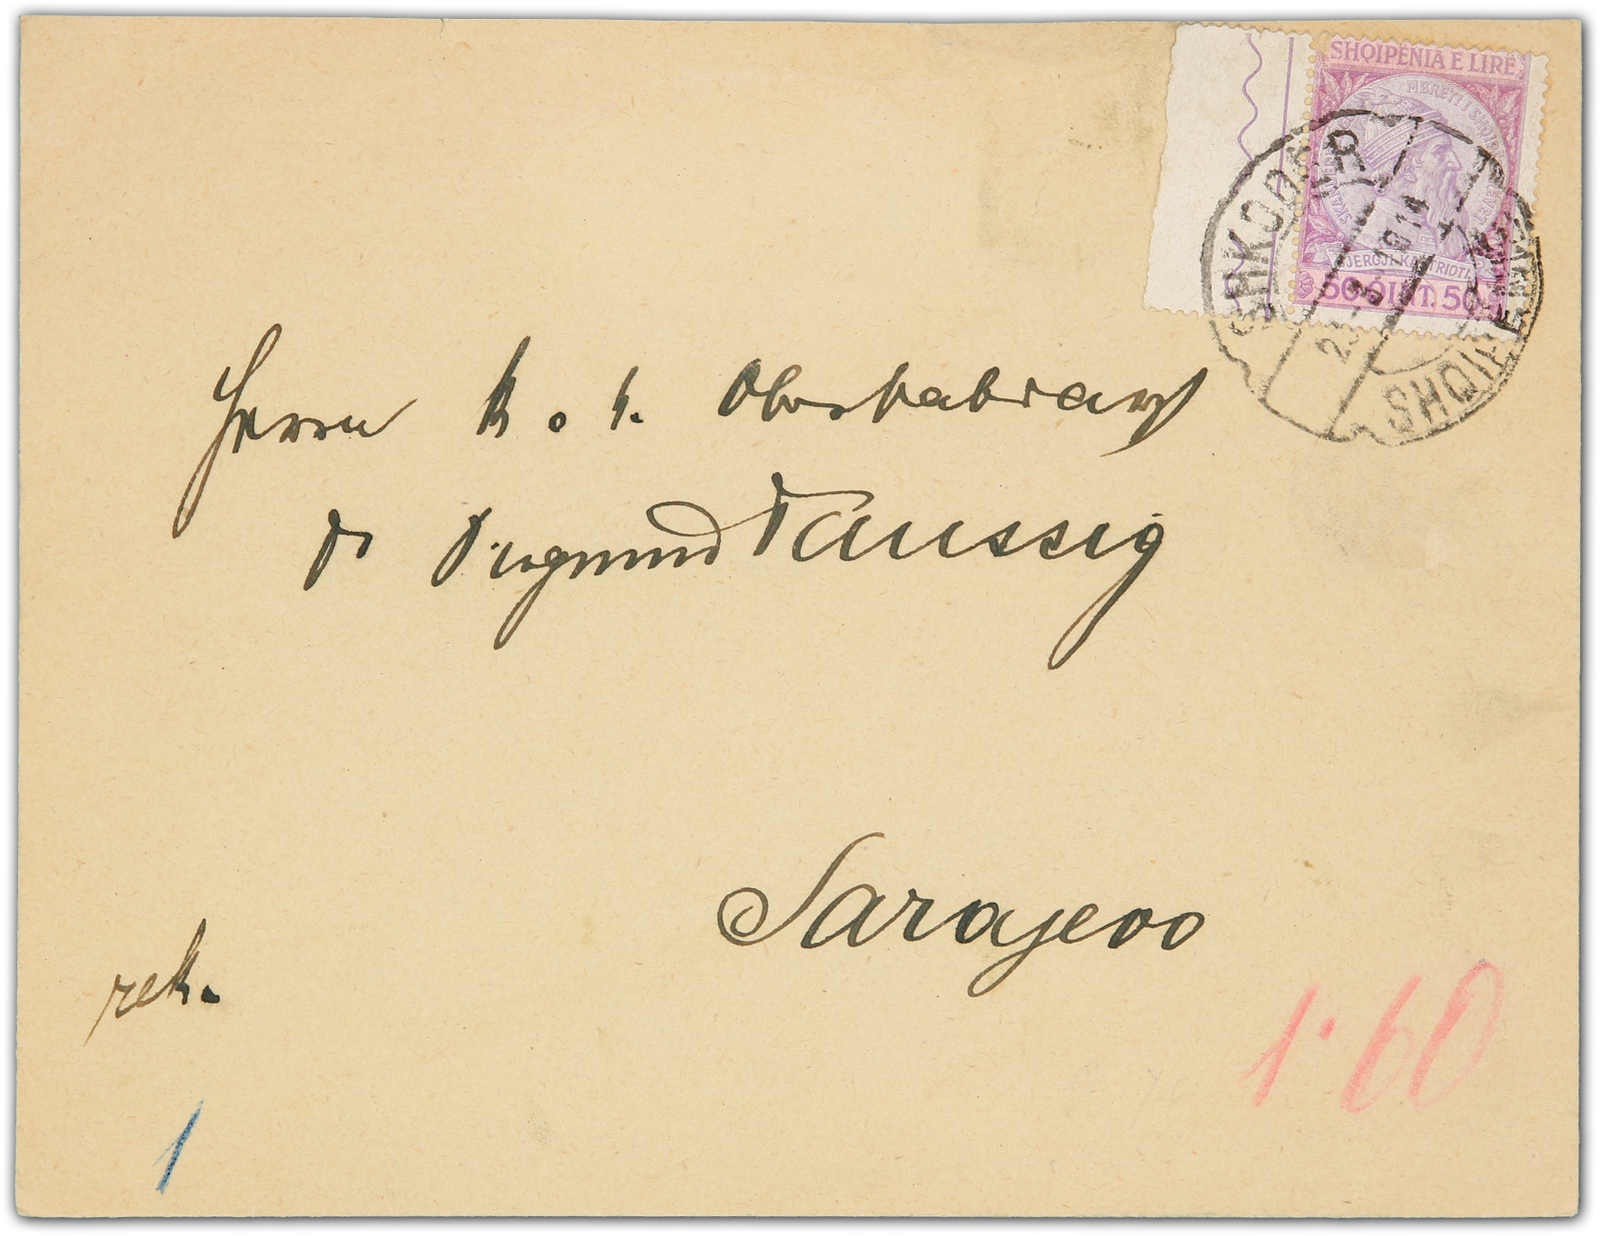 SHQIPËNIA E LIRË
MBRETI I SHQI
GJERGJ KASTRIOTI
50 QINT. 50
SHKODËR
SHQIPËNIË
Herrn k. k. Oberstabsarzt
Dr Siegmund Taussig
Sarajevo
rek.
1·60
1